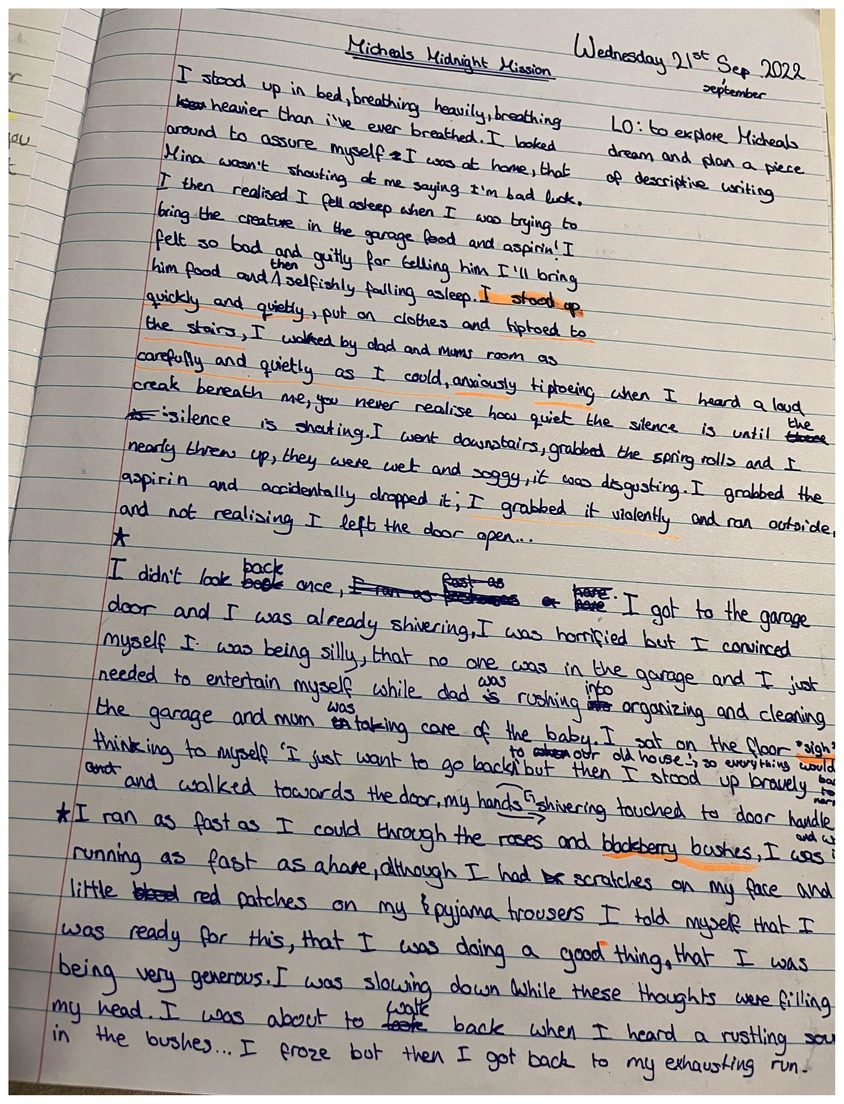 Micheals Midnight Mission
Wednesday 21st Sep 2022
september
LO: to explore Micheals
dream and plan a piece
of descriptive writing
I stood up in bed, breathing heavily, breathing
heavier than i've ever breathed. I looked
around to assure myself I was at home, that
Mina wasn't shouting at me saying I'm bad luck.
I then realised I fell asleep when I was trying to
bring the creature in the garage food and aspirin! I
felt so bad and guitly for telling him I'll bring
him food and then selfishly falling asleep. I stood up
quickly and quietly, put on clothes and tiptoed to
the stairs, I walked by dad and mums room as
carefully and quietly as I could, anxiously tiptoeing when I heard a loud
creak beneath me, you never realise how quiet the silence is until the
silence is shouting. I went downstairs, grabbed the spring rolls and I
nearly threw up, they were wet and soggy, it was disgusting. I grabbed the
aspirin and accidentally dropped it; I grabbed it violently and ran outside,
and not realising I left the door open...
★
I didn't look back once, I got to the garage
door and I was already shivering, I was horrified but I convinced
myself I was being silly, that no one was in the garage and I just
needed to entertain myself while dad was rushing into organizing and cleaning
the garage and mum was taking care of the baby. I sat on the floor *sigh*
thinking to myself 'I just want to go back to our old house', so everything would
but then I stood up bravely
and walked towards the door, my hands shivering touched to door handle
★ I ran as fast as I could through the roses and blackberry bushes, I was
running as fast as a hare, although I had scratches on my face and
little red patches on my pyjama trousers I told myself that I
was ready for this, that I was doing a good thing, that I was
being very generous. I was slowing down while these thoughts were filling
my head. I was about to walk back when I heard a rustling
in the bushes... I froze but then I got back to my exhausting run.